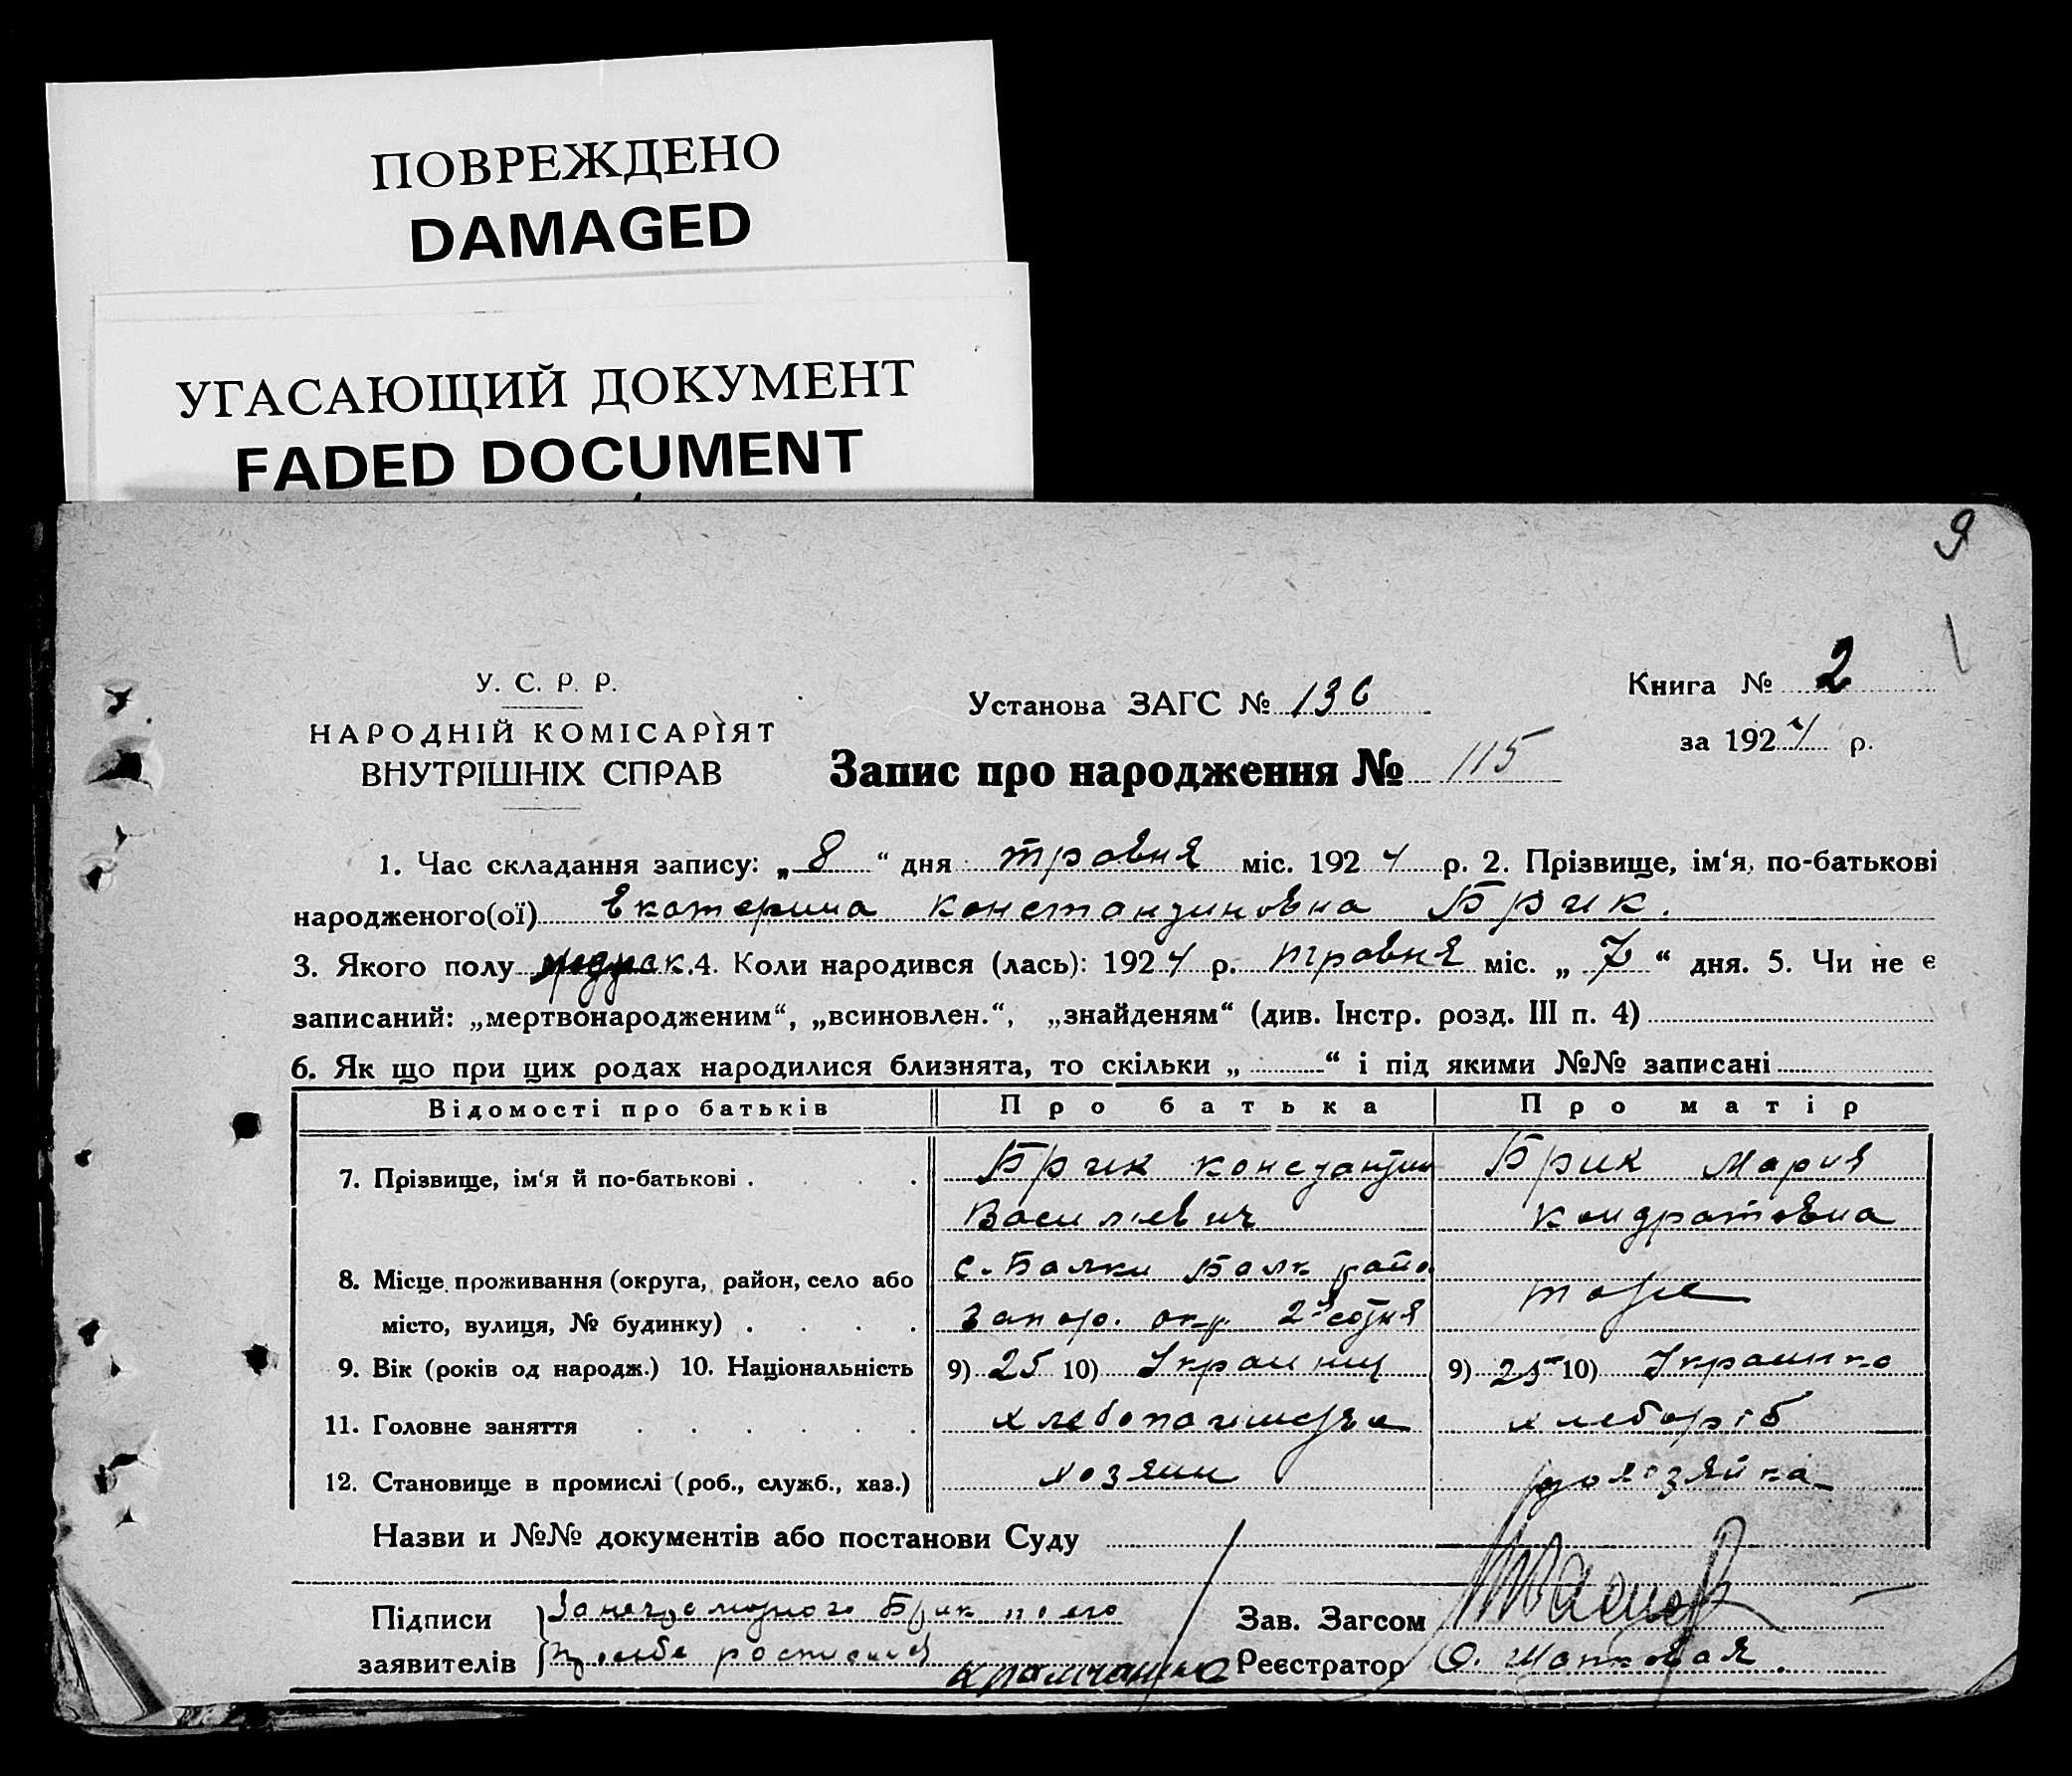 ПОВРЕЖДЕНО
DAMAGED
УГАСАЮЩИЙ ДОКУМЕНТ
FADED DOCUMENT
9
У. С. Р. Р.
НАРОДНІЙ КОМІСАРІЯТ
ВНУТРІШНІХ СПРАВ
Установа ЗАГС № 136
Запис про народження № 115
Книга № 2
за 1924 р.
1. Час складання запису: „8“ дня травня міс. 1924 р. 2. Прізвище, ім‘я, по-батькові
народженого(ої) Екатерина Констандиновна Брик.
3. Якого полу 4. Коли народився (лась): 1924 р. травня міс. „7“ дня. 5. Чи не є
записаний: „мертвонародженим“, „всиновлен.“, „знайденям“ (див. Інстр. розд. III п. 4)
6. Як що при цих родах народилися близнята, то скільки „ “ і під якими №№ записані
Відомості про батьків Про батька Про матір
7. Прізвище, ім‘я й по-батькові . Брик Констянтин Брик Мария
Василиевич Кондратовна
8. Місце проживання (округа, район, село або с. Балки Балк райо. тоже
місто, вулиця, № будинку) . Запор. окр. 2я сотня
9. Вік (років од народж.) 10. Національність 9) 25 10) Украинц 9) 25 10) Украинка
11. Головне заняття хлеборіб
12. Становище в промислі (роб., служб., хаз.) хозяин
Назви и №№ документів або постанови Суду
Підписи За неграмотного Брик по его
заявителів прозбе росписался
Зав. Загсом
Реєстратор О. Шаповая